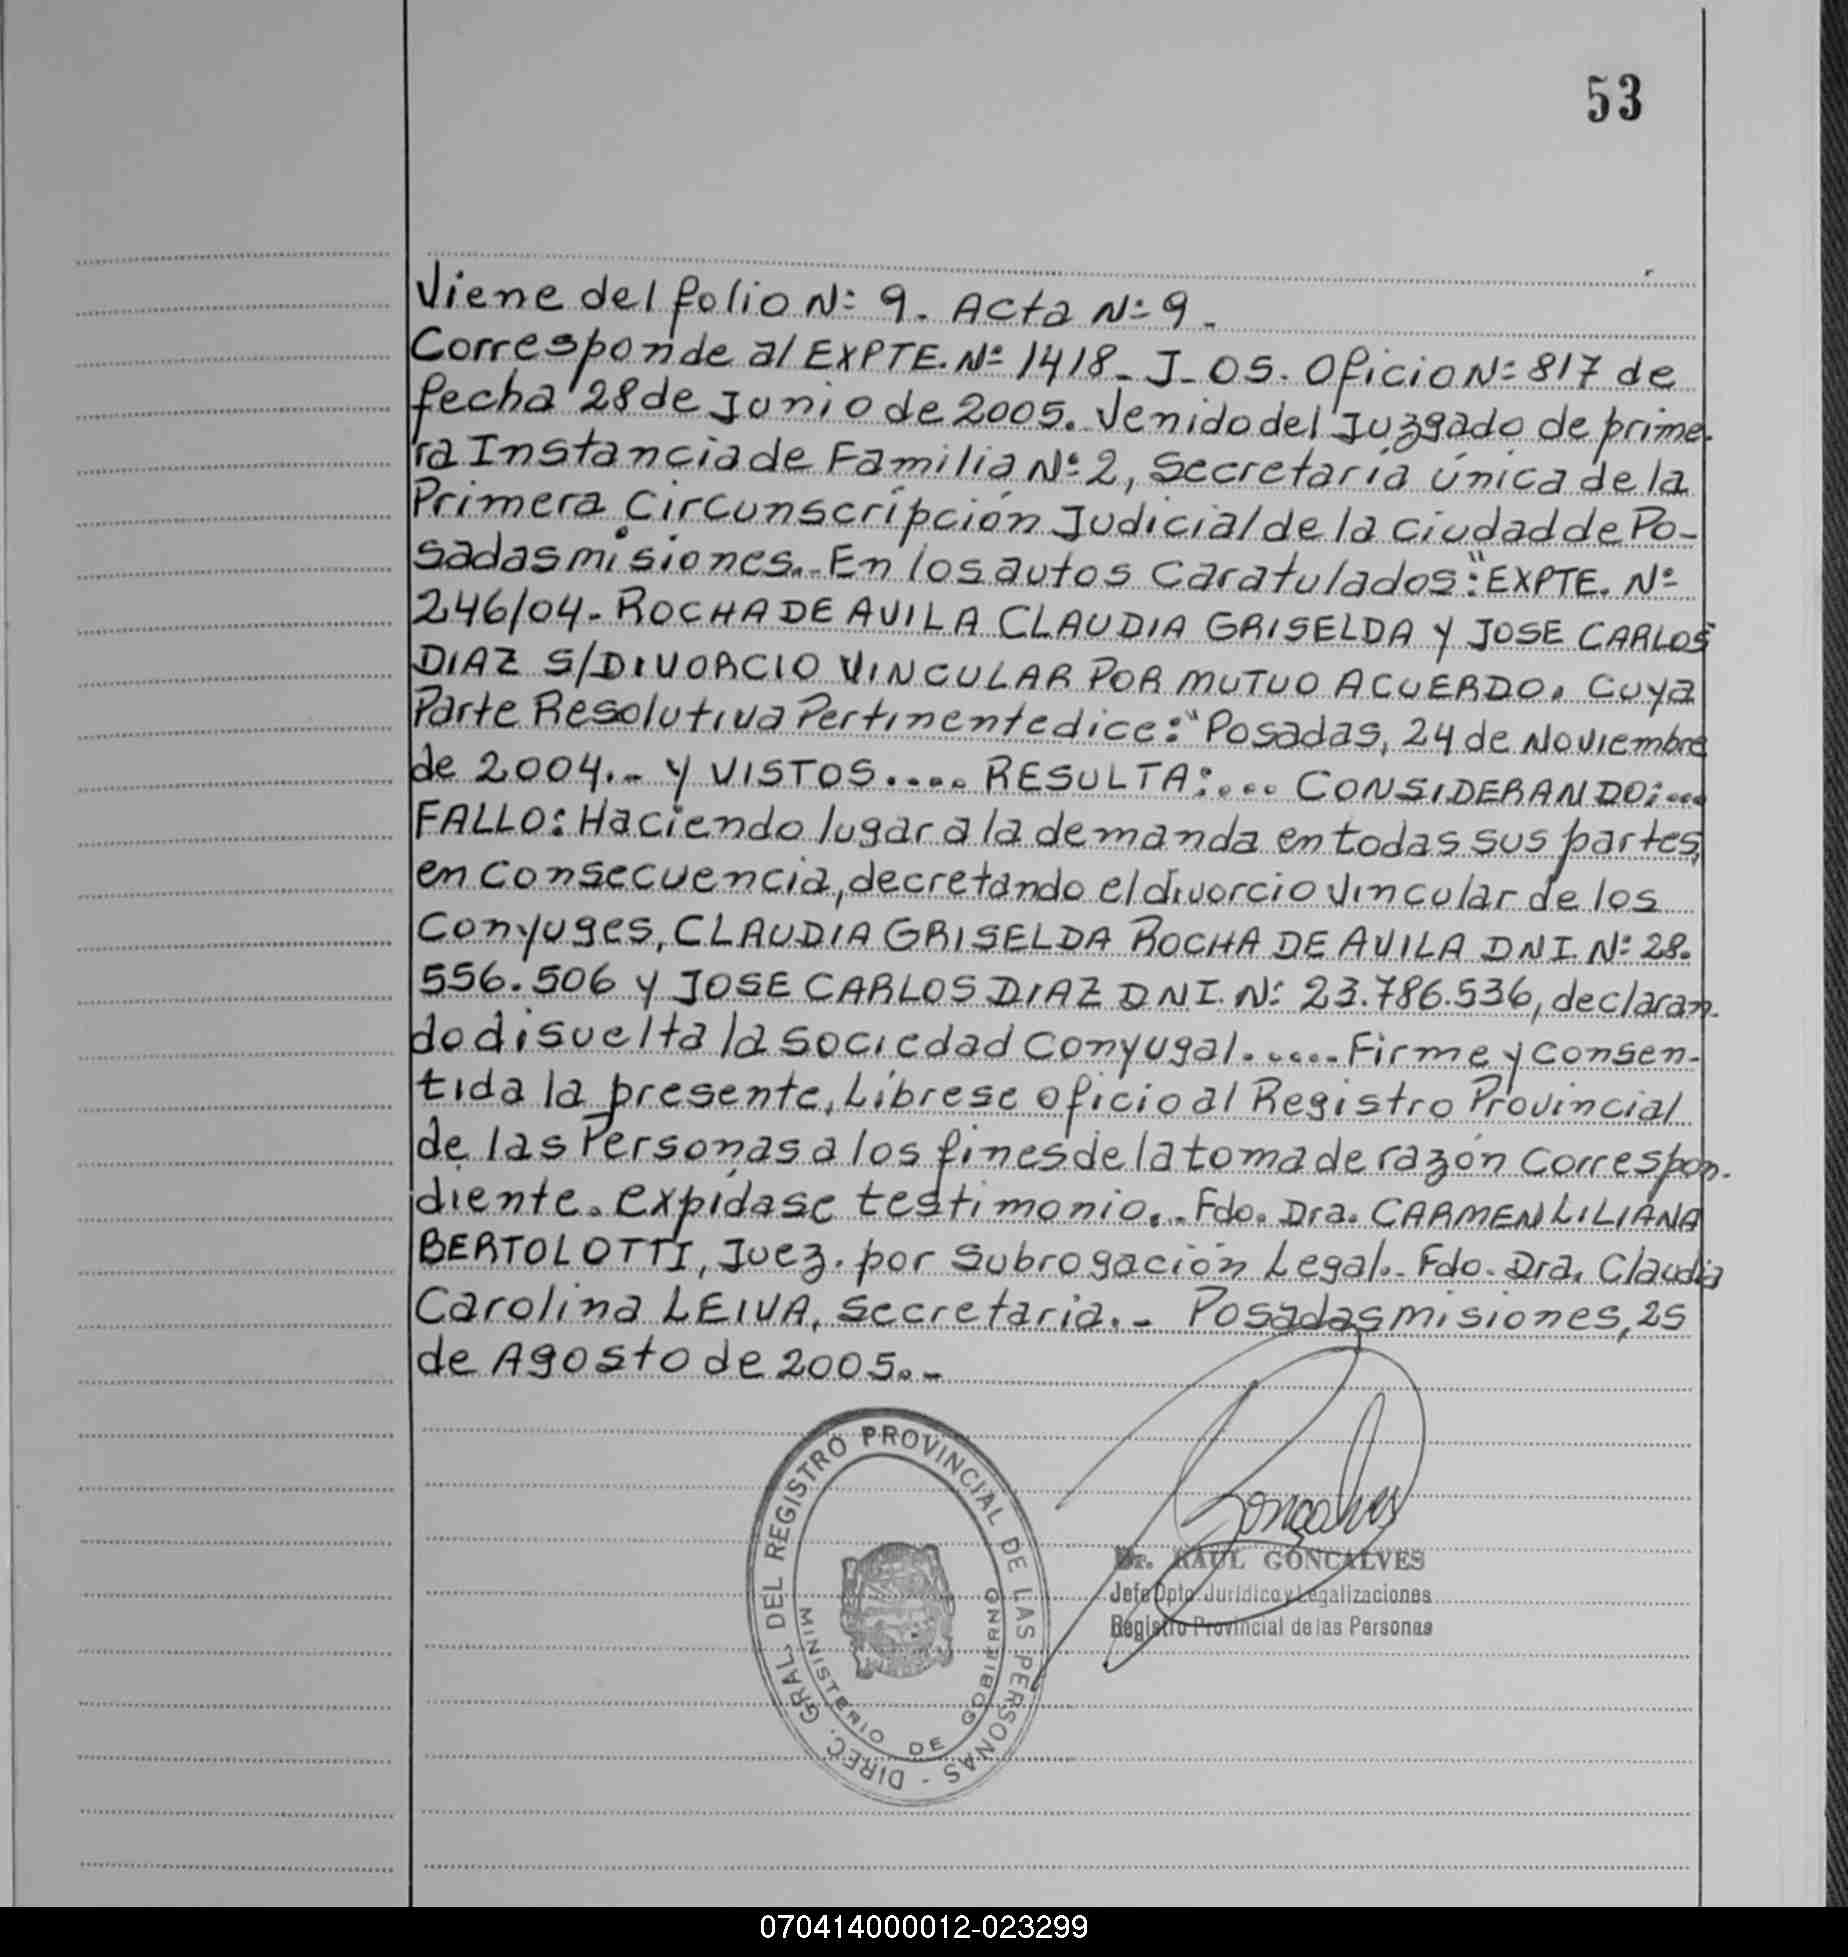 53
Viene del folio Nº 9. Acta Nº 9.
Corresponde al EXPTE. Nº 1418-J-05. Oficio Nº 817 de
fecha 28 de Junio de 2005. Venido del Juzgado de prime-
ra Instancia de Familia Nº 2, Secretaría única de la
Primera Circunscripción Judicial de la Ciudad de Po-
sadas misiones.- En los autos Caratulados: "EXPTE. Nº
246/04- ROCHA DE AVILA CLAUDIA GRISELDA Y JOSE CARLOS
DIAZ S/DIVORCIO VINCULAR POR MUTUO ACUERDO. Cuya
Parte Resolutiva Pertinente dice: "Posadas, 24 de Noviembre
de 2004.- Y VISTOS.... RESULTA:... CONSIDERANDO:...
FALLO: Haciendo lugar a la demanda en todas sus partes,
en Consecuencia, decretando el divorcio Vincular de los
Conyuges, CLAUDIA GRISELDA ROCHA DE AVILA DNI. Nº 28.
556.506 y JOSE CARLOS DIAZ DNI. Nº 23.786.536, declaran-
do disuelta la Sociedad Conyugal...... Firme y Consen-
tida la presente, Líbrese oficio al Registro Provincial
de las Personas a los fines de la toma de razón Correspon-
diente. Expídase testimonio.- Fdo. Dra. CARMEN LILIANA
BERTOLOTTI, Juez. por Subrogación Legal.- Fdo. Dra. Claudia
Carolina LEIVA, Secretaria.- Posadas misiones, 25
de Agosto de 2005.-
DIREC. GRAL. DEL REGISTRO PROVINCIAL DE LAS PERSONAS -
MINISTERIO DE GOBIERNO
Gonçalves
Dr. RAUL GONCALVES
Jefe Dpto. Jurídico y Legalizaciones
Registro Provincial de las Personas
070414000012-023299